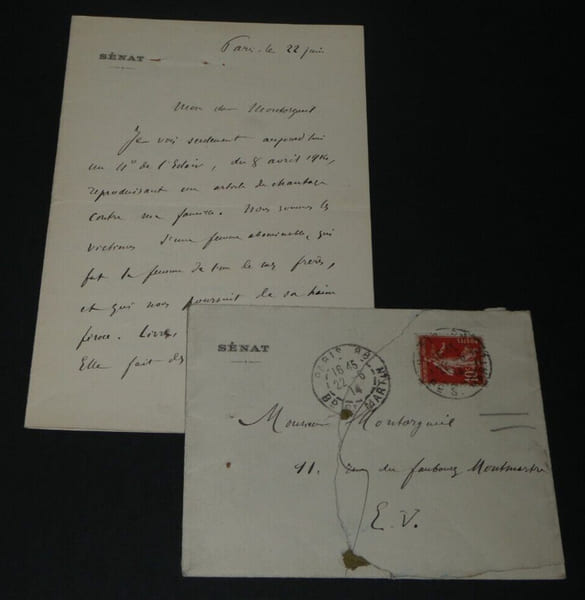 SÉNAT
Paris le 22 juin
Mon cher Montorgueil
Je vois seulement aujourd'hui
un N° de l'Eclair, du 8 avril 1914,
reproduisant un article de chantage
contre ma famille. Nous sommes les
victimes d'une femme abominable, qui
fut la femme de l'un de mes frères,
et qui nous poursuit de sa haine
féroce.
Elle fait des
SÉNAT
PARIS
16 45
22 - 6
14
MARTIN
10
Monsieur Montorgueil
11, rue du faubourg Montmartre
E. V.